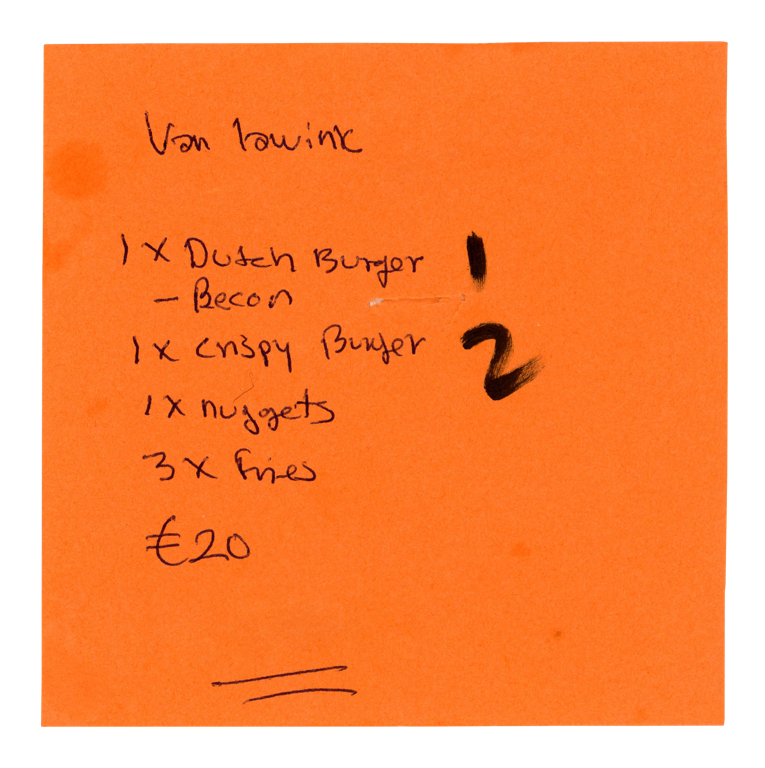 Van lawink
1 x Dutch Burger 1
- Becon
1 x crispy Burger 2
1 x nuggets
3 x Fries
€20